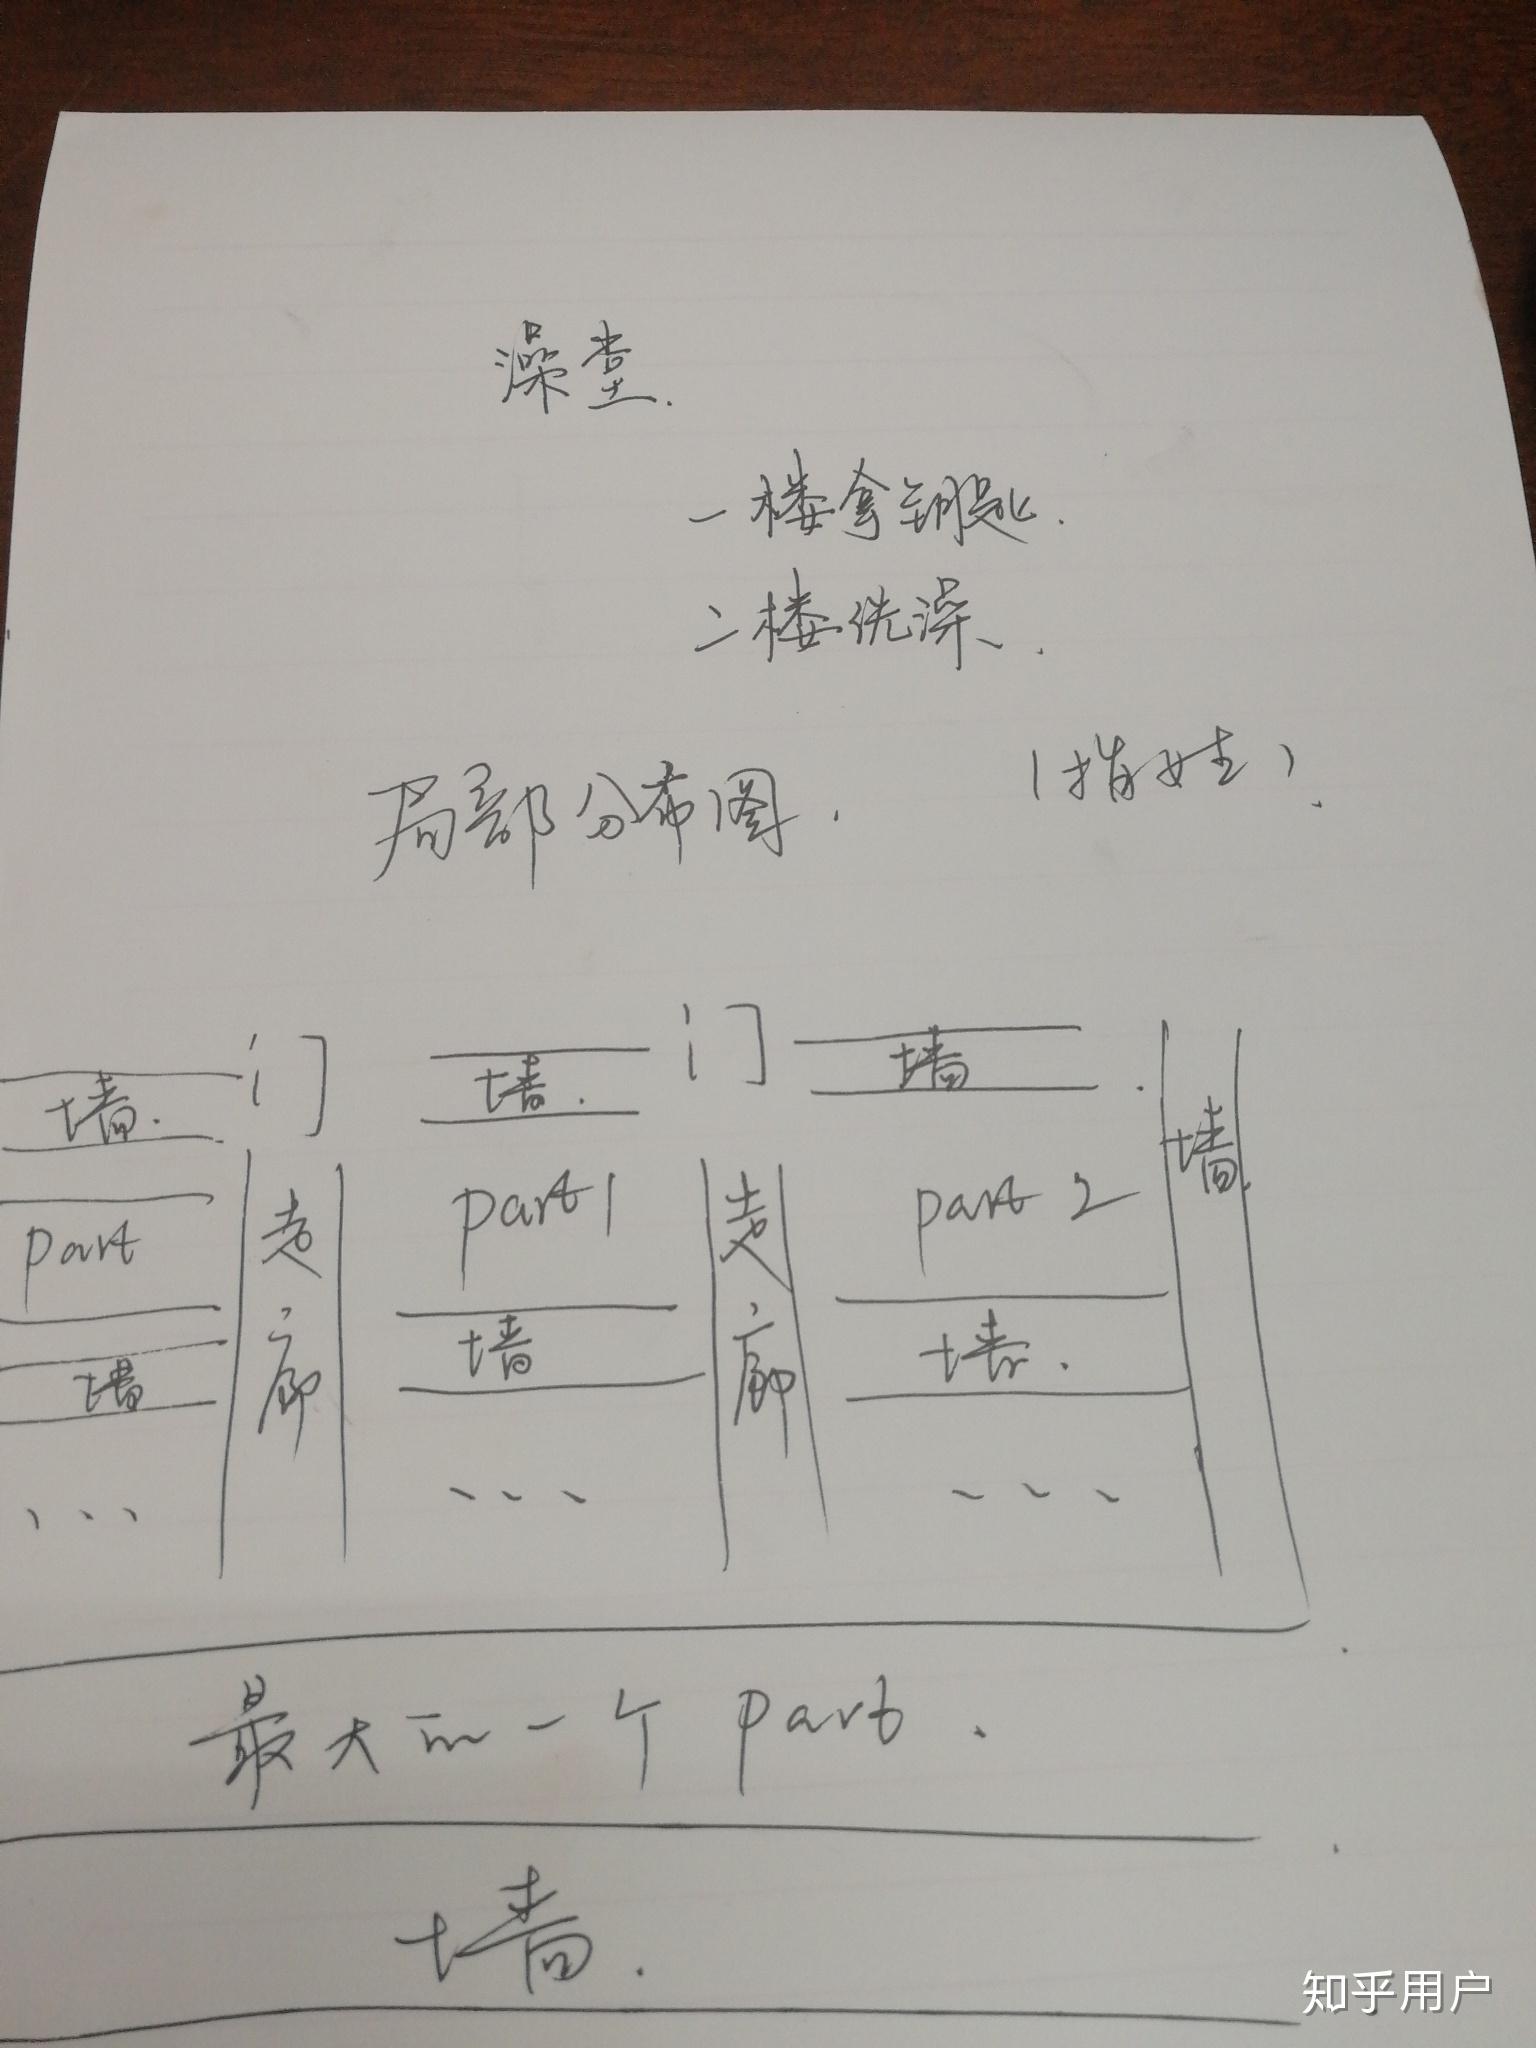 澡堂.
一楼拿钥匙.
二楼洗澡.
局部分布图.
墙. 门 墙. 门 墙 墙
part 走廊 part1 走廊 part 2
墙 墙 墙.
... ... ...
最大的一个 part.
墙.
知乎用户